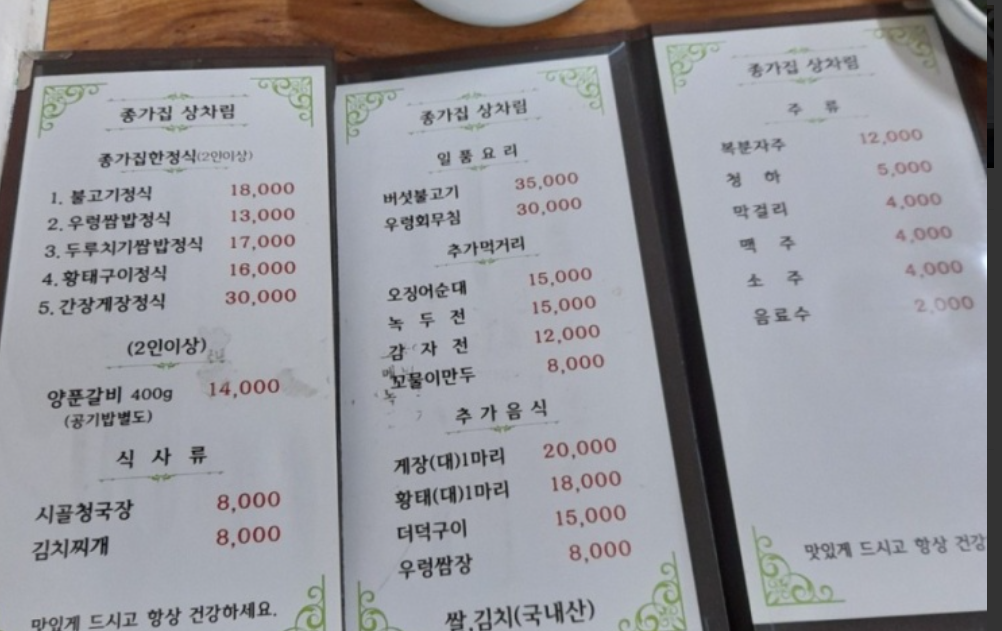 종가집 상차림
종가집한정식(2인이상)
1. 불고기정식 18,000
2. 우렁쌈밥정식 13,000
3. 두루치기쌈밥정식 17,000
4. 황태구이정식 16,000
5. 간장게장정식 30,000
(2인이상)
양푼갈비 400g 14,000
(공기밥별도)
식 사 류
시골청국장 8,000
김치찌개 8,000
맛있게 드시고 항상 건강하세요.
종가집 상차림
일 품 요 리
버섯불고기 35,000
우렁회무침 30,000
추가먹거리
오징어순대 15,000
녹 두 전 15,000
감 자 전 12,000
꼬물이만두 8,000
추 가 음 식
게장(대)1마리 20,000
황태(대)1마리 18,000
더덕구이 15,000
우렁쌈장 8,000
쌀,김치(국내산)
종가집 상차림
주 류
복분자주 12,000
청 하 5,000
막걸리 4,000
맥 주 4,000
소 주 4,000
음료수 2,000
맛있게 드시고 항상 건강